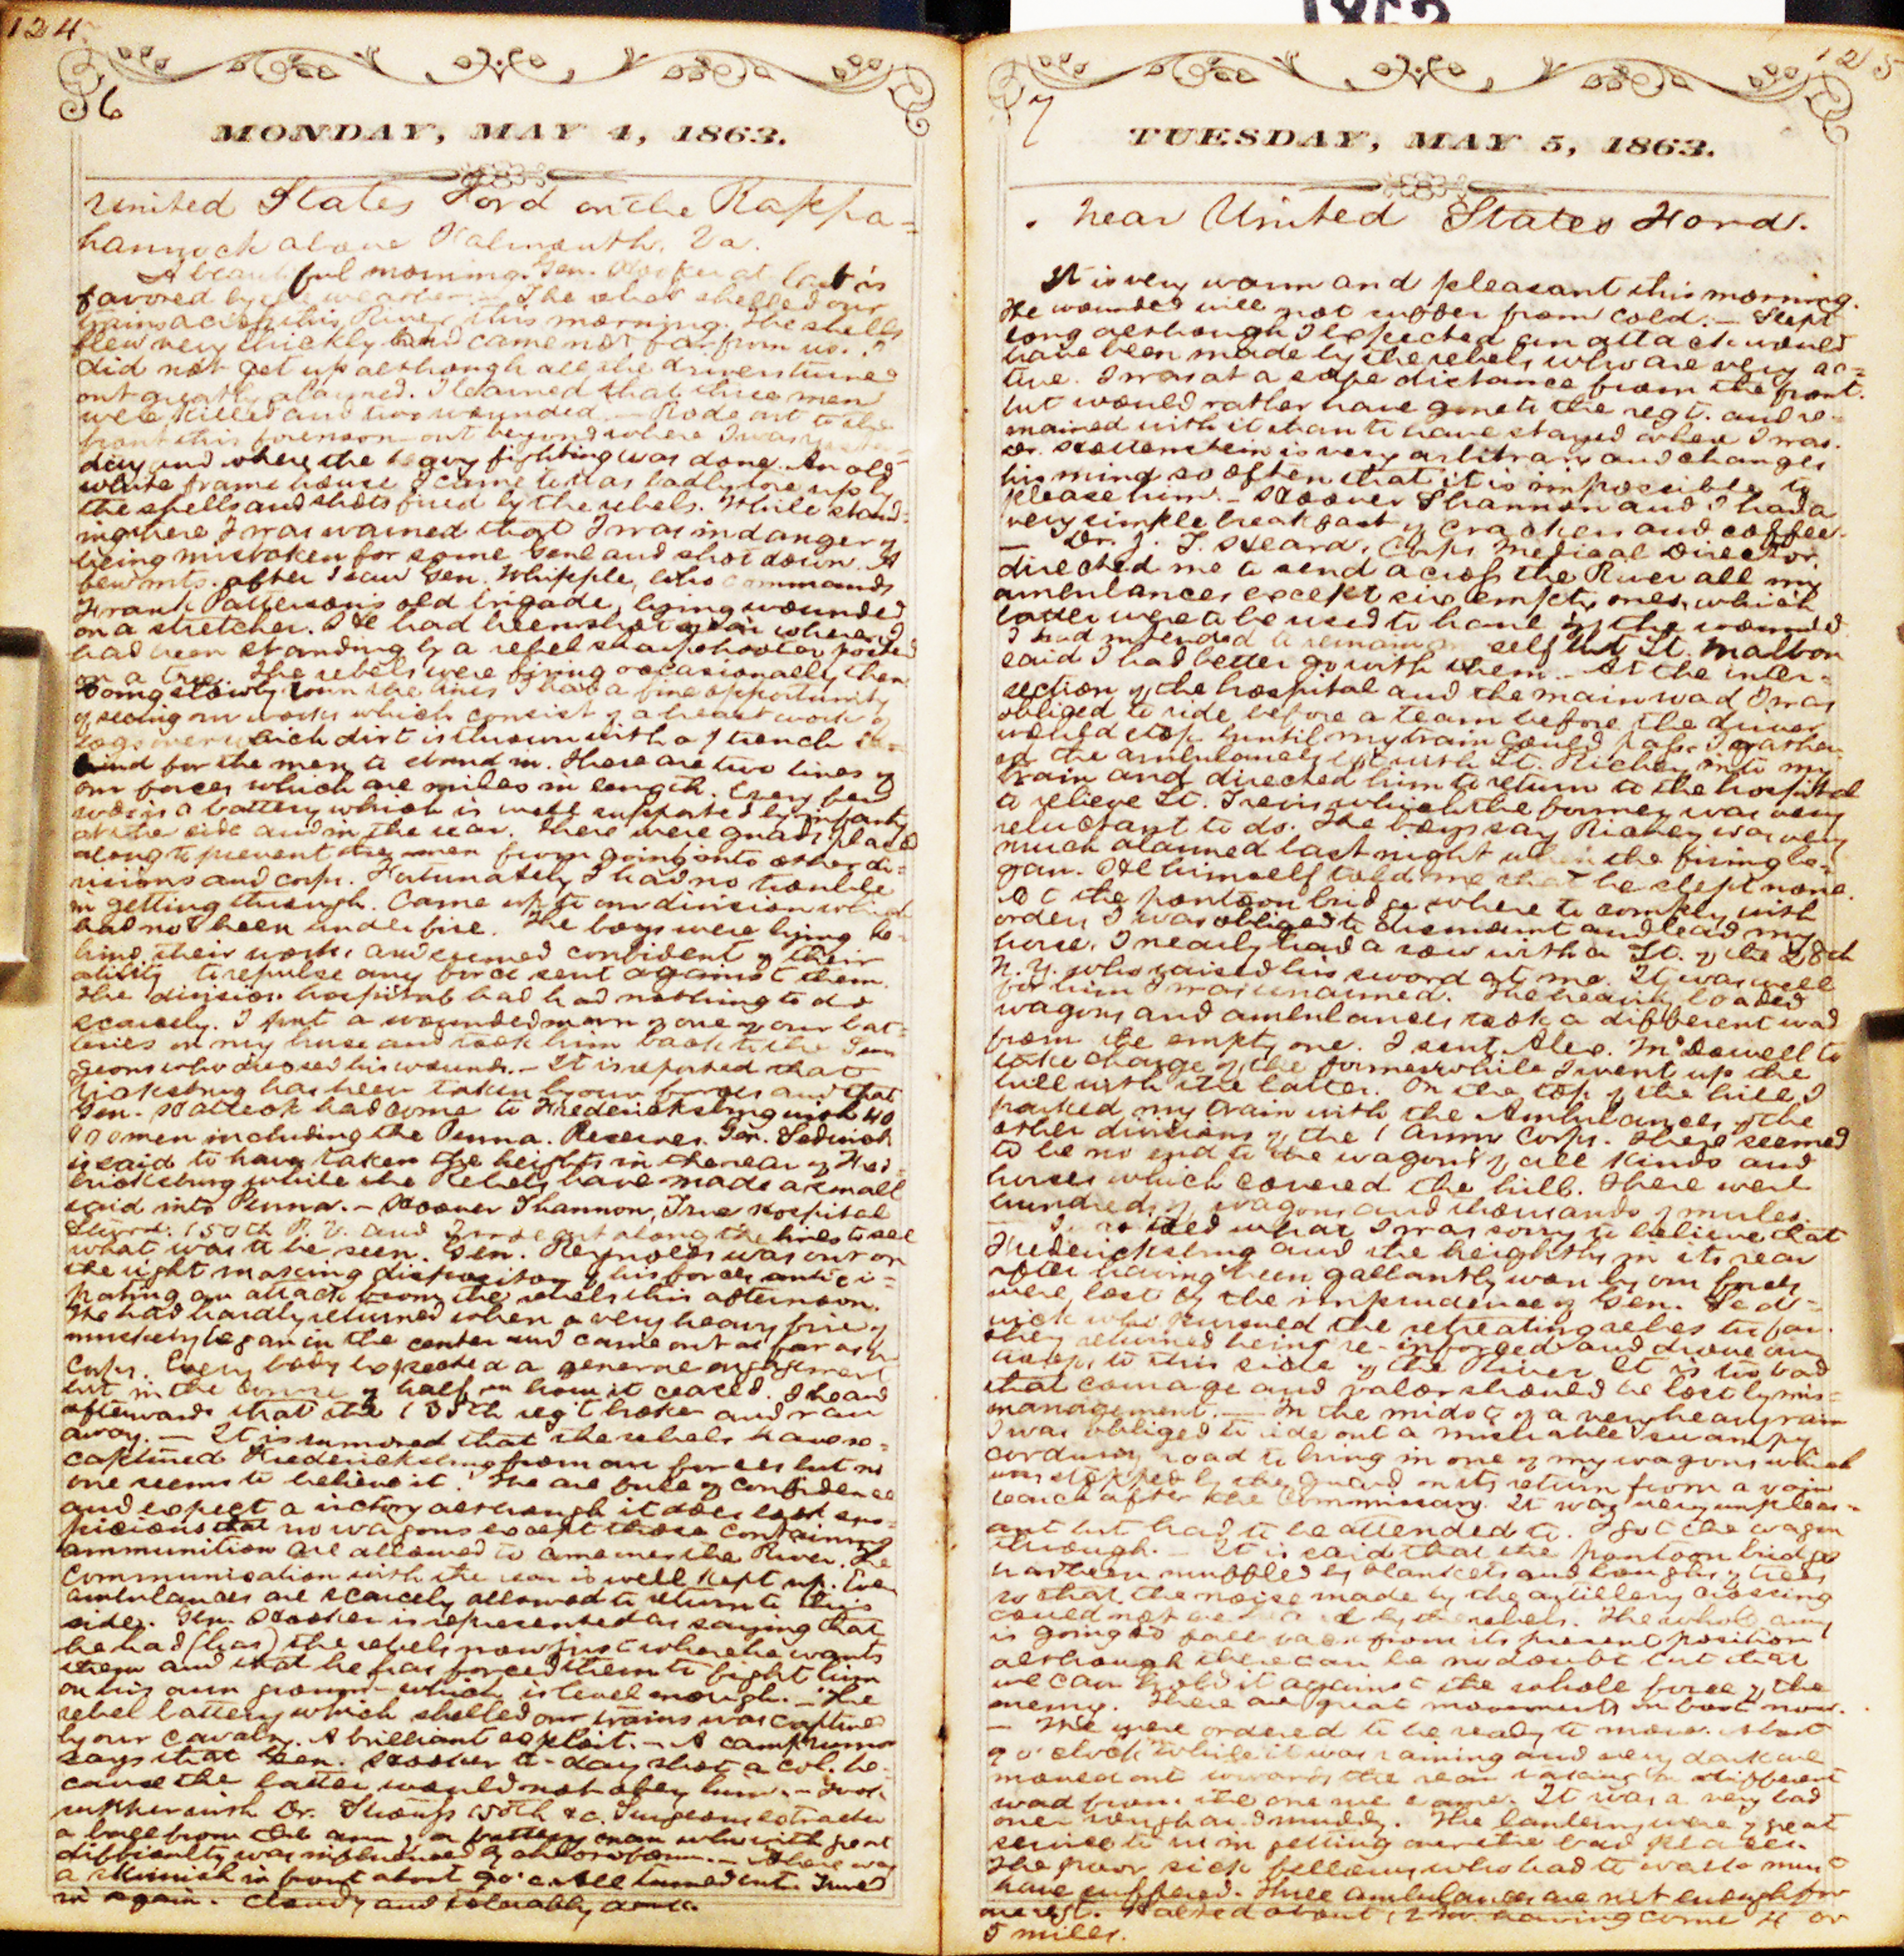 124
6
MONDAY, MAY 4, 1863.
United States Ford on the Rappa=
hannock above Falmouth, Va.
A beautiful morning. Gen. Hooker at last is
favored by the weather. — The rebels shelled our
trains across this River this morning. The shells
flew very thickly and came not far from us. I
did not get up although all the drivers turned
out greatly alarmed. I learned that three men
were killed and two wounded. — Rode out to the
front this forenoon — out beyond where I was yester-
day and where the heavy fighting was done. An old
white frame house I came to was badly tore up by
the shells and shots fired by the rebels. While stand-
ing here I was warned that I was in danger of
being mistaken for some Genl and shot down. A
few mts. after I saw Gen. Whipple, who commands
Frank Patterson's old brigade, lying wounded
on a stretcher. He had been shot near where I
had been standing by a rebel sharpshooter posted
on a tree. The rebels were firing occasionally then.
Going slowly down the lines I had a fine opportunity
of seeing our works which consist of a breast work of
logs over which dirt is thrown with a trench be=
hind for the men to stand in. There are two lines of
our forces which are miles in length. Every few
rods is a battery which is well supported by infantry
at the side and in the rear. There were guards placed
along to prevent the men from going into other di=
visions and corps. Fortunately I had no trouble
in getting through. Came up to our division which
had not been under fire. The boys were lying be-
hind their works and seemed confident of their
ability to repulse any force sent against them.
The division hospital had had nothing to do
scarcely. I put a wounded man of one of our bat-
teries on my horse and took him back to the Sur
geons who dressed his wounds. — It is reported that
Vicksburg has been taken by our forces and that
Gen. Halleck had come to Fredericksburg with 40
000 men including the Penna. Reserves. Gen. Sedwick
is said to have taken the heights in the rear of Fred-
ericksburg while the Rebels have made a small
raid into Penna. — Hoover Shannon, True Hospital
Stewrd. 150th P. V. and I rode out along the lines to see
what was to be seen. Gen. Reynolds was out on
the right making disposition of his forces antici=
pating an attack from the rebels this afternoon.
He had hardly returned when a very heavy fire of
musketry began in the center and came out as far as our
Corps. Every body expected a general engagement
but in the course of half an hour it ceased. I heard
afterwards that the 135th reg't broke and ran
away. — It is rumored that the rebels have re=
captured Fredericksburg from our forces but no
one seems to believe it. We are full of confidence
and expect a victory although it does look sus=
picious that no wagons except those containing
ammunition are allowed to come over the River. The
communication with the rear is well kept up. Even
ambulances are scarcely allowed to return to this
side. Gen. Hooker is represented as saying that
he had (has) the rebels now just where he wants
them and that he has forced them to fight him
on his own ground — which is level enough. — The
rebel battery which shelled our trains was captured
by our cavalry. A brilliant exploit. — A camp rumor
says that Gen. Hooker to-day shot a Col. be-
cause the latter would not obey him. — Took
supper with Dr. 150th &c. Surgeons extracted
a ball from the arm of a battery man who with great
difficulty was influenced by chloroform. — There was
a skirmish in front about 9 o'c. All turned out. Turned
in again. Cloudy and tolerably dark.
125
7
TUESDAY, MAY 5, 1863.
Near United States Ford.
It is very warm and pleasant this morning.
The wounded will not suffer from cold. — Slept
long although I expected an attack would
have been made by the rebels who are very ac=
tive. I was at a safe distance from the front
but would rather have gone to the regt. and re-
mained with it than to have stayed where I was.
Dr. Hottenstein is very arbitrary and changes
his mind so often that it is impossible to
please him. — Hoover Shannon and I had a
very simple breakfast of crackers and coffee.
— Dr. J. T. Heard, Corps Medical Director,
directed me to send across the River all my
ambulances except six empty ones, which
latter were to be used to haul off the wounded.
I had intended to remain myself but Lt. Malbon
said I had better go with them. — At the inter-
section of the hospital and the main road I was
obliged to ride before a team before the driver
would stop until my train could pass. I gather-
ed the ambulances left with Lt. Richey into my
train and directed him to return to the hospital
to relieve Lt. which the former was very
reluctant to do. The boys say Richey was very
much alarmed last night when the firing be=
gan. He himself told me that he slept none.
At the pontoon bridge where to comply with
orders I was obliged to dismount and lead my
horse, I nearly had a row with a Lt. of the 28th
N.Y. who raised his sword at me. It was well
for him I was unarmed. The heavily loaded
wagons and ambulances took a different road
from the empty one. I sent Alex. McDowell to
take charge of the former while I went up the
hill with the latter. On the top of the hill I
parked my train with the Ambulances of the
other divisions of the 1 Army Corps. There seemed
to be no end to the wagons of all kinds and
horses which covered the hill. There were
hundreds of wagons and thousands of mules.
what I was sorry to believe that
Fredericksburg and the heights in its rear
after having been gallantly won by our forces
were lost by the imprudence of Gen. Sed-
wick who pursued the retreating rebels too far.
They returned being re-inforced and drove our
troops to this side of the River. It is too bad
that courage and valor should be lost by mis=
management. — In the midst of a very heavy rain
I was obliged to ride out a miserable swampy
corduroy road to bring in one of my wagons which
was stopped by the guard on its return from a vain
search after the Commissary. It was very unpleas=
ant but had to be attended to. I got the wagon
through. — It is said that the pontoon bridge
has been muffled by blankets and boughs of trees
so that the noise made by the artillery crossing
could not be heard by the rebels. The whole army
is going to fall back from its present position
although there can be no doubt but that
we can hold it against the whole force of the
enemy. There are great movements on foot now.
— We were ordered to be ready to move. About
9 o'clock while it was raining and very dark we
moved out towards the rear taking a different
road from the one we came. It was a very bad
one rough and muddy. The lanterns were of great
service to us in getting over the bad places.
The poor sick fellows who had to walk must
have suffered. Three ambulances are not enough for
one regt. Halted about 12 M. having come 4 or
5 miles.